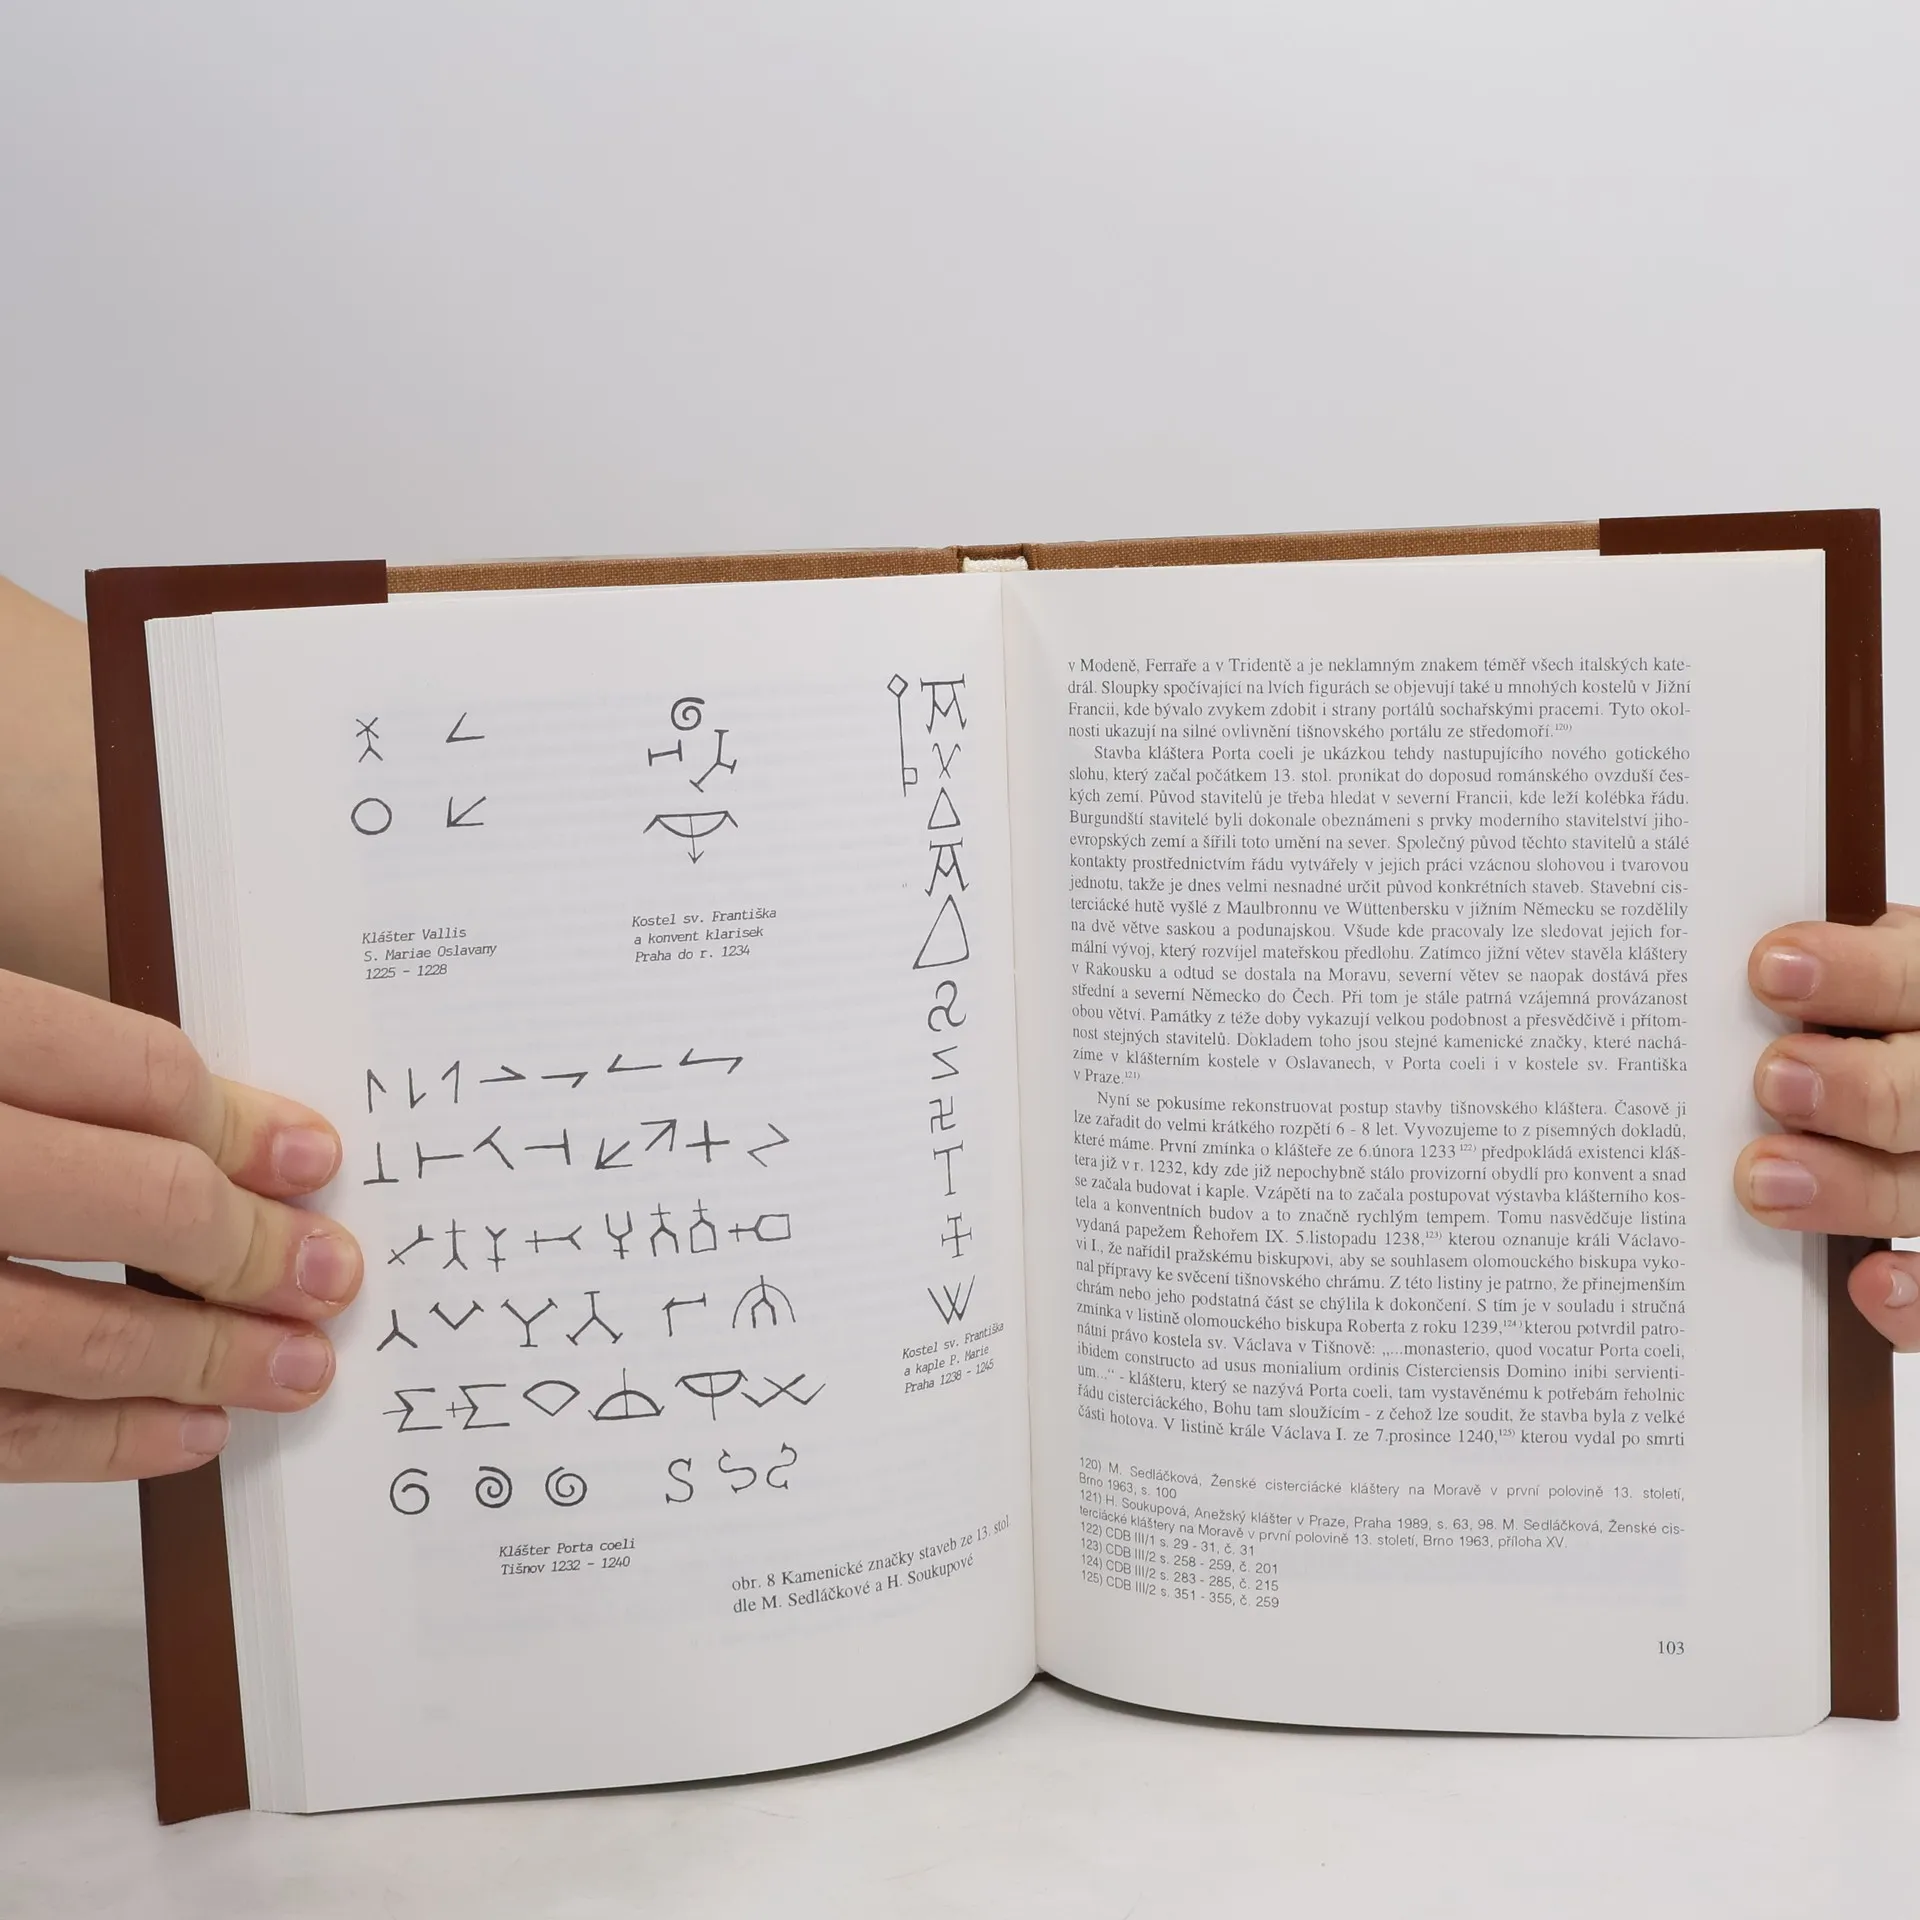 Klášter Vallis
S. Mariae Oslavany
1225 - 1228
Kostel sv. Františka
a konvent klarisek
Praha do r. 1234
Kostel sv. Františka
a kaple P. Marie
Praha 1238 - 1245
Klášter Porta coeli
Tišnov 1232 - 1240
obr. 8 Kamenické značky staveb ze 13. stol.
dle M. Sedláčkové a H. Soukupové
v Modeně, Ferraře a v Tridentě a je neklamným znakem téměř všech italských kate-
drál. Sloupky spočívající na lvích figurách se objevují také u mnohých kostelů v Jižní
Francii, kde bývalo zvykem zdobit i strany portálů sochařskými pracemi. Tyto okol-
nosti ukazují na silné ovlivnění tišnovského portálu ze středomoří.120)
Stavba kláštera Porta coeli je ukázkou tehdy nastupujícího nového gotického
slohu, který začal počátkem 13. stol. pronikat do doposud románského ovzduší čes-
kých zemí. Původ stavitelů je třeba hledat v severní Francii, kde leží kolébka řádu.
Burgundští stavitelé byli dokonale obeznámeni s prvky moderního stavitelství jiho-
evropských zemí a šířili toto umění na sever. Společný původ těchto stavitelů a stálé
kontakty prostřednictvím řádu vytvářely v jejich práci vzácnou slohovou i tvarovou
jednotu, takže je dnes velmi nesnadné určit původ konkrétních staveb. Stavební cis-
terciácké hutě vyšlé z Maulbronnu ve Wüttenbersku v jižním Německu se rozdělily
na dvě větve saskou a podunajskou. Všude kde pracovaly lze sledovat jejich for-
mální vývoj, který rozvíjel mateřskou předlohu. Zatímco jižní větev stavěla kláštery
v Rakousku a odtud se dostala na Moravu, severní větev se naopak dostává přes
střední a severní Německo do Čech. Při tom je stále patrná vzájemná provázanost
obou větví. Památky z téže doby vykazují velkou podobnost a přesvědčivě i přítom-
nost stejných stavitelů. Dokladem toho jsou stejné kamenické značky, které nachá-
zíme v klášterním kostele v Oslavanech, v Porta coeli i v kostele sv. Františka
v Praze.121)
Nyní se pokusíme rekonstruovat postup stavby tišnovského kláštera. Časově ji
lze zařadit do velmi krátkého rozpětí 6 - 8 let. Vyvozujeme to z písemných dokladů,
které máme. První zmínka o klášteře ze 6.února 1233 122) předpokládá existenci kláš-
tera již v r. 1232, kdy zde již nepochybně stálo provizorní obydlí pro konvent a snad
se začala budovat i kaple. Vzápětí na to začala postupovat výstavba klášterního kos-
tela a konventních budov a to značně rychlým tempem. Tomu nasvědčuje listina
vydaná papežem Řehořem IX. 5.listopadu 1238,123) kterou oznanuje králi Václavo-
vi I., že nařídil pražskému biskupovi, aby se souhlasem olomouckého biskupa vyko-
nal přípravy ke svěcení tišnovského chrámu. Z této listiny je patrno, že přinejmenším
chrám nebo jeho podstatná část se chýlila k dokončení. S tím je v souladu i stručná
zmínka v listině olomouckého biskupa Roberta z roku 1239,124) kterou potvrdil patro-
nátní právo kostela sv. Václava v Tišnově: „...monasterio, quod vocatur Porta coeli,
ibidem constructo ad usus monialium ordinis Cisterciensis Domino inibi servienti-
um...“ - klášteru, který se nazývá Porta coeli, tam vystavěnému k potřebám řeholnic
řádu cisterciáckého, Bohu tam sloužícím - z čehož lze soudit, že stavba byla z velké
části hotova. V listině krále Václava I. ze 7.prosince 1240,125) kterou vydal po smrti
120) M. Sedláčková, Ženské cisterciácké kláštery na Moravě v první polovině 13. století,
Brno 1963, s. 100
121) H. Soukupová, Anežský klášter v Praze, Praha 1989, s. 63, 98. M. Sedláčková, Ženské cis-
terciácké kláštery na Moravě v první polovině 13. století, Brno 1963, příloha XV.
122) CDB III/1 s. 29 - 31, č. 31
123) CDB III/2 s. 258 - 259, č. 201
124) CDB III/2 s. 283 - 285, č. 215
125) CDB III/2 s. 351 - 355, č. 259
103